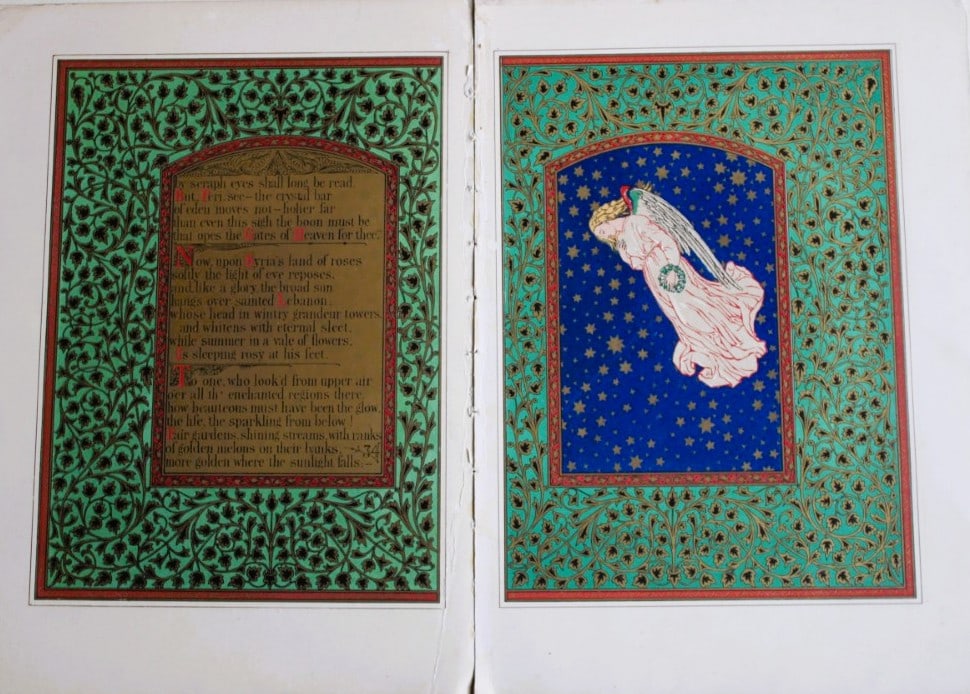 by seraph eyes shall long be read.
But, Peri, see – the crystal bar
of eden moves not – holier far
than even this sigh the boon must be
that opes the Gates of Heaven for thee.
Now, upon Syria's land of roses
softly the light of eve reposes,
and, like a glory, the broad sun
hangs over sainted Lebanon;
whose head in wintry grandeur towers,
and whitens with eternal sleet,
while summer in a vale of flowers,
Is sleeping rosy at his feet.
To one, who look'd from upper air
o'er all th' enchanted regions there,
how beauteous must have been the glow,
the life, the sparkling from below!
Fair gardens, shining streams, with ranks
of golden melons on their banks, 34
more golden where the sunlight falls, –